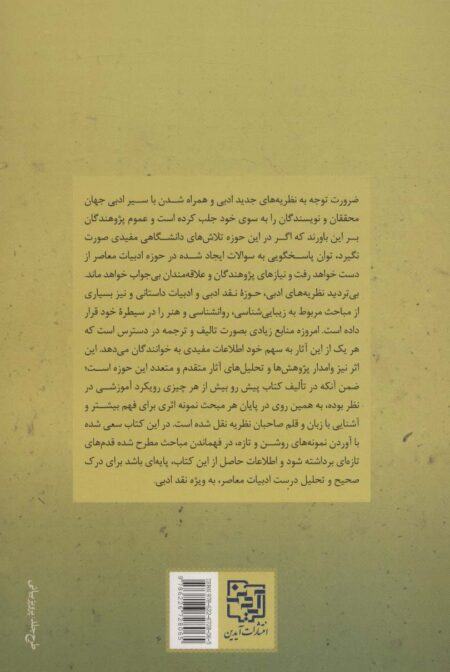 ضرورت توجه به نظریه‌های جدید ادبی و همراه شدن با سیر ادبی جهان
محققان و نویسندگان را به سوی خود جلب کرده است و عموم پژوهندگان
بر این باورند که اگر در این حوزه تلاش‌های دانشگاهی مفیدی صورت
نگیرد، توان پاسخگویی به سوالات ایجاد شده در حوزه ادبیات معاصر از
دست خواهد رفت و نیازهای پژوهندگان و علاقه‌مندان بی‌جواب خواهد ماند.
بی‌تردید نظریه‌های ادبی، حوزهٔ نقد ادبی و ادبیات داستانی و نیز بسیاری از
مباحث مربوط به زیبایی‌شناسی، روانشناسی و هنر را در سیطرهٔ خود قرار
داده است. امروزه منابع زیادی بصورت تالیف و ترجمه در دسترس است که
هر یک از این آثار به سهم خود اطلاعات مفیدی به خوانندگان می‌دهد. این
اثر نیز وامدار پژوهش‌ها و تحلیل‌های آثار متقدم و متعدد این حوزه است؛
ضمن آنکه در تألیف کتاب پیش رو بیش از هر چیزی رویکرد آموزشی در
نظر بوده، به همین روی در پایان هر مبحث نمونه اثری برای فهم بیشتر و
آشنایی با زبان و قلم صاحبان نظریه نقل شده است. در این کتاب سعی شده
با آوردن نمونه‌های روشن و تازه، در فهماندن مباحث مطرح شده قدم‌های
تازه‌ای برداشته شود و اطلاعات حاصل از این کتاب، پایه‌ای باشد برای درک
صحیح و تحلیل درست ادبیات معاصر، به ویژه نقد ادبی.
انتشارات آیدین